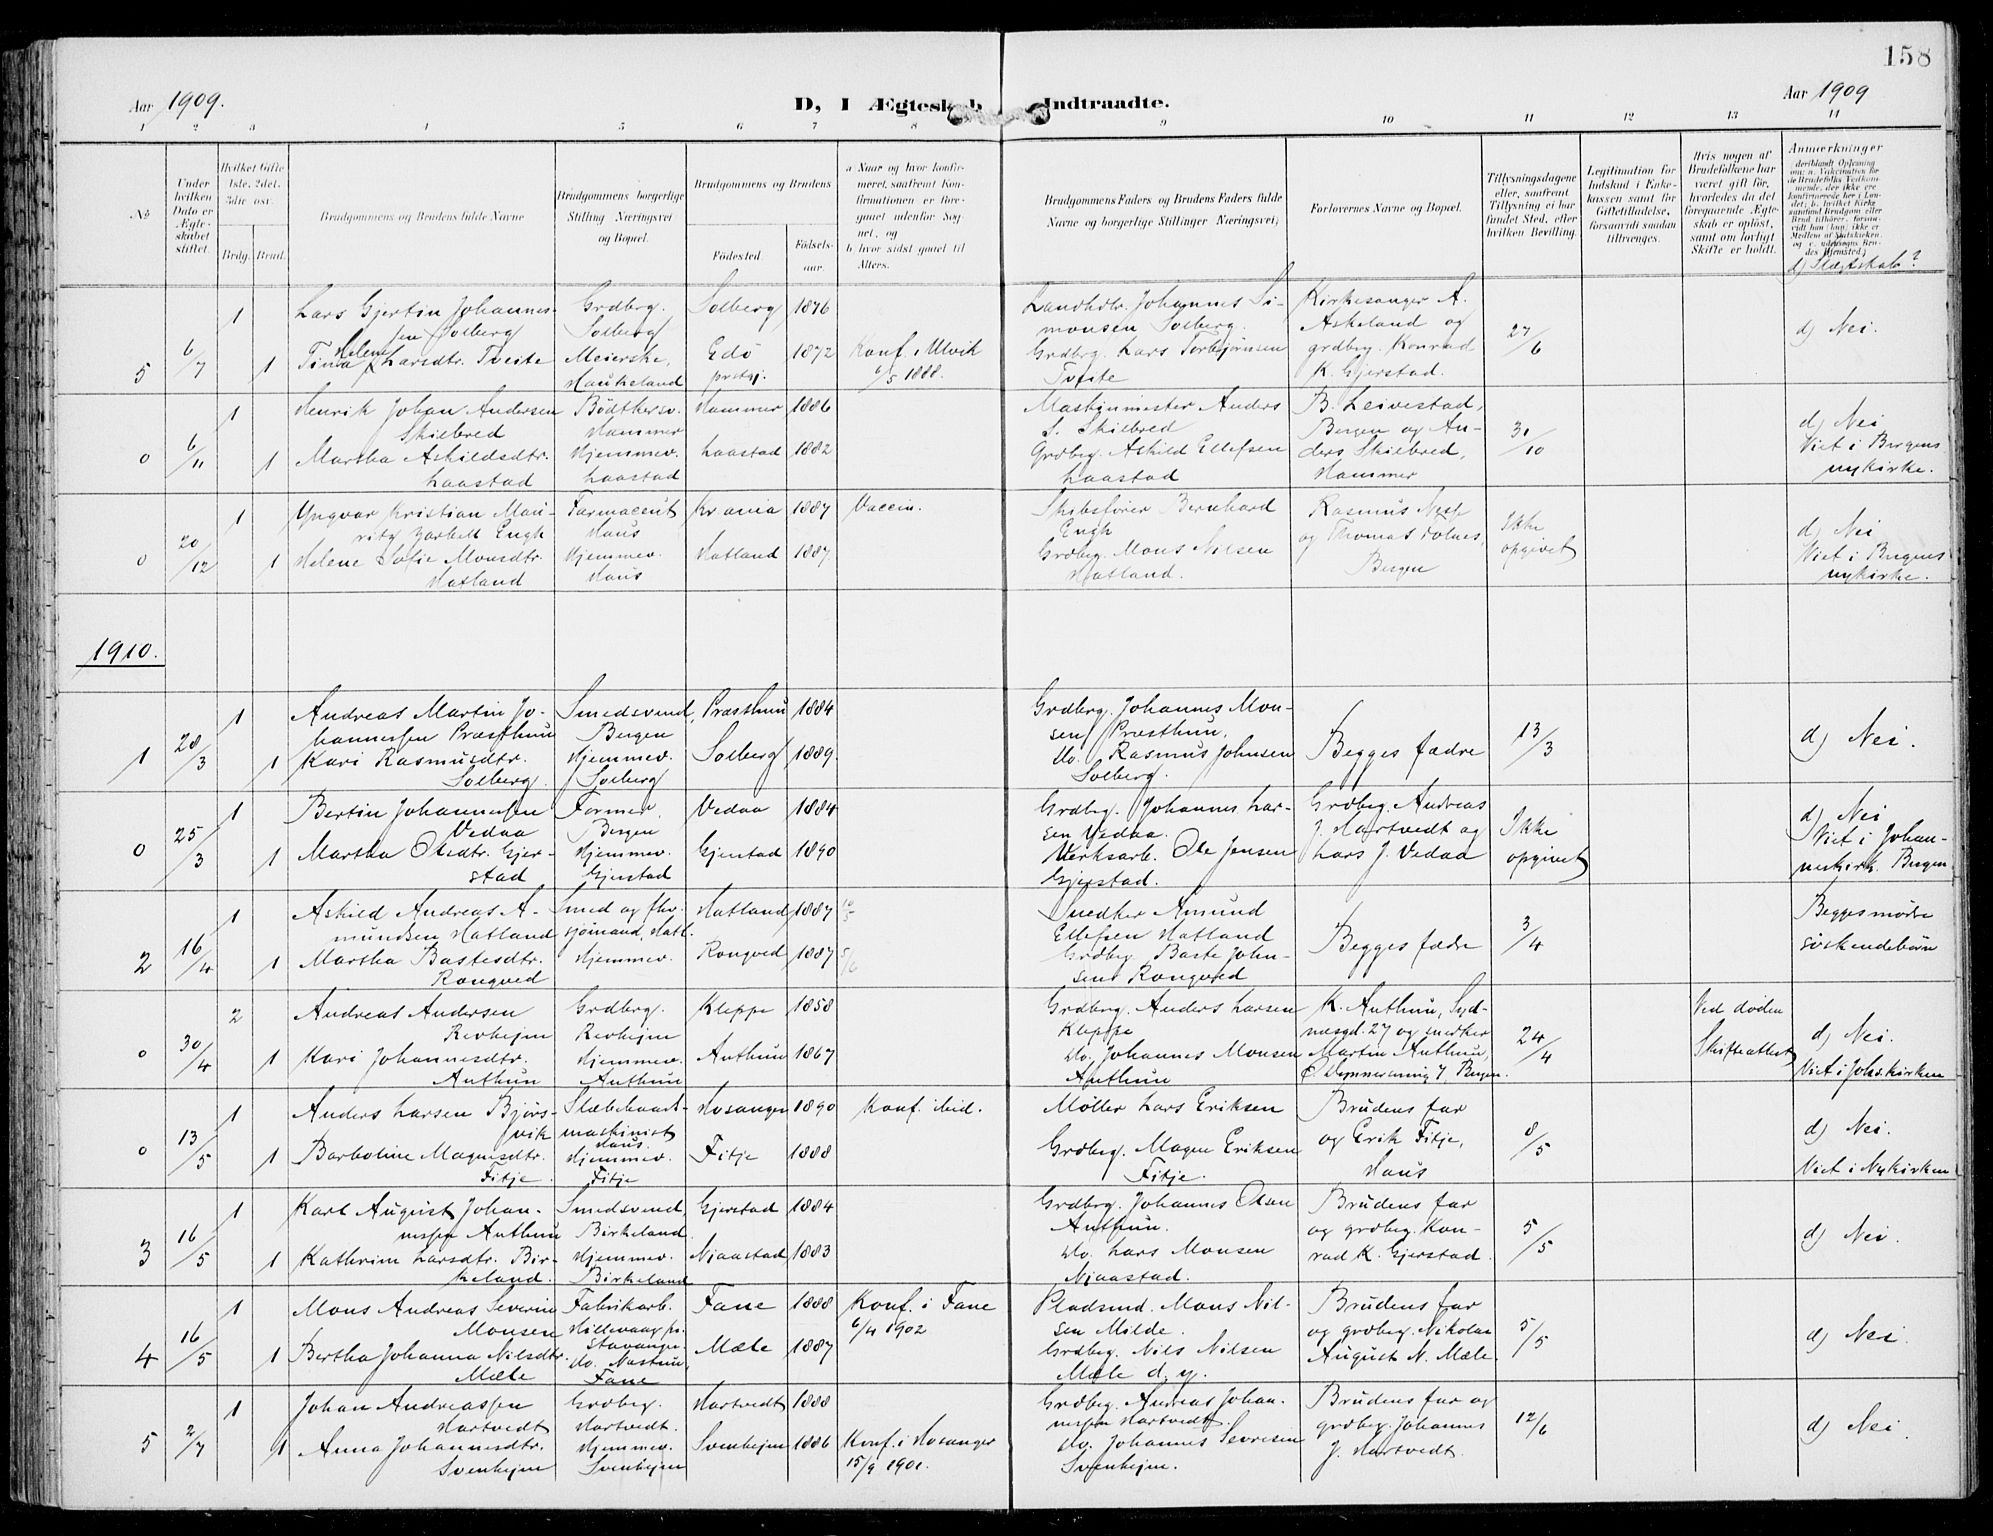 158
Aar 1909.
D, I Ægteskab Indtraadte.
Aar 1909
1 2 3 4 5 6 7 8 9 10 11 12 13 14
No
Under hvilken Dato er Ægteskabet stiftet.
Hvilket Gifte 1ste, 2det, 3die osv.
Brdg. Brud.
Brudgommens og Brudens fulde Navne
Brudgommens borgerlige Stilling Næringsvei og Bopæl.
Brudgommens og Brudens
Fødested
Fødsels-aar.
a Naar og hvor konfirmeret, saafremt Konfirmationen er foregaaet udenfor Sognet, og
b hvor sidst gaaet til Alters.
Brudgommens Faders og Brudens Faders fulde Navne og borgerlige Stillinger Næringsvei;
Forlovernes Navne og Bopæl.
Tillysningsdagene eller, saafremt Tillysning ei har fundet Sted, efter hvilken Bevilling.
Legitimation for Indskud i Enkekassen samt for Giftetilladelse, forsaavidt saadan tiltrænges.
Hvis nogen af Brudefolkene har været gift før, hvorledes da det foregaaende Ægteskab er opløst, samt om lovligt Skifte er holdt.
Anmærkninger
d) Slægtskab?
5 6/7 1 Lars Gjertin Johannes-
sen Solberg
Grdbrg. Solberg
Solberg 1876
Landhdr. Johannes Si-
monsen Solberg.
Kirkesanger A.
Askeland og
grdbrg. Konrad
K. Gjerstad.
27/6
d) Nei.
1 Tina Helene Larsdtr. Tveite
Meierske, Haukeland
Edö prstgj. 1872
Konf. Ulvik
6/5 1888.
Grdbrg. Lars Torbjørnsen
Tveite
0 6/11 1 Henrik Johan Andersen
Skilbred
Bödkersv. Hammer
Hammer 1886
Maskinmester Anders
S. Skilbred
B. Leivestad,
Bergen og An-
ders Skilbred,
Hammer
31/10
d) Nei
Viet i Bergens
nykirke.
1 Martha Askildsdtr.
Laastad
Hjemmev. Laastad
Laastad 1882
Grdbrg. Askild Ellefsen
Laastad
0 20/12 1 Yngvar Kristian Mau-
ritz Engh
Farmaceut Haus
Kr ania 1887
Vaccin.
Skibsfører Bernhard
Engh
Rasmus
og Thomas
Bergen
Ikke
opgivet
d) Nei
Viet i Bergens
nykirke.
1 Helene Sofie Monsdtr.
Hatland
Hjemmev. Haus
Hatland 1887
Grdbrg. Mons Nilsen
Hatland.
1910.
1 28/3 1 Andreas Martin Jo-
hannessen Præsthun
Smedsvend, Bergen
Præsthun 1884
Grdbrg. Johannes Mon-
sen Præsthun.
Begges fædre
13/3
d) Nei.
1 Kari Rasmusdtr.
Solberg.
Hjemmev. Solberg
Solberg 1889.
do. Rasmus Johnsen
Solberg.
0 25/3 1 Bertin Johannessen
Vedaa
Former, Bergen
Vedaa 1884
Grdbrg. Johannes Lar-
sen Vedaa.
Grdbrg. Andreas
J. Hartvedt og
Lars J. Vedaa
Ikke
opgivet
d) Nei
Viet i Johan-
neskirk. Bergen
1 Martha Olsdtr. Gjer-
stad
Hjemmev. Gjerstad
Gjerstad 1890
Verksarb. Ole Jensen
Gjerstad.
2 16/4 1 Askild Andreas A-
mundsen Hatland
Smed og fhv. sjömand, Hatl.
Hatland 1887
Snedker Amund
Ellefsen Hatland
Begges fædre
3/4
Begges mødre
söskendebörn
1 Martha Bastesdtr.
Rongved
Hjemmev.
Rongved 1887
Grdbrg. Baste John-
sen Rongved
0 30/4 2 Andreas Andersen
Revhejm
Grdbrg. Revhejm
Kleppe 1858
Grdbrg. Anders Larsen
Kleppe
K. Anthun, Syd-
nesgd. 27 og snedker
Martin Anthun,
7, Bergen.
24/4
Ved døden
Skifteattest
d) Nei.
Viet i Johs.kirken
1 Kari Johannesdtr.
Anthun
Hjemmev. Anthun
Anthun 1867
do. Johannes Monsen
Anthun
0 13/5 1 Anders Larsen Bjørs-
vik
Slæbebaads-
maskinist
Haus.
Hosanger 1890
Konf. ibid.
Møller Lars Eriksen
Brudens far
og Erik Fitje,
Haus
8/5
d) Nei.
Viet i Nykirken
1 Barboline Magnesdtr.
Fitje.
Hjemmev. Fitje
Fitje 1888
Grdbrg. Magne Eriksen
Fitje.
3 16/5 1 Karl August Johan-
nessen Anthun
Smedsvend Birkeland
Gjerstad 1884
Grdbrg. Johannes Olsen
Anthun.
Brudens far
og grdbrg. Kon-
rad K. Gjerstad.
5/5
d) Nei.
1 Kathrine Larsdtr. Bir-
keland.
Hjemmev. Birkeland
Njaastad 1883
do. Lars Monsen
Njaastad.
4 16/5 1 Mons Andreas Severin
Monsen
Fabrikarb.
Hillevaag pr.
Stavanger
Fane 1888
Konf. i Fane
6/4 1902
Pladsmd. Mons Nil-
sen Milde.
Brudens far
og grdbrg. Nikolai
August N. Mæle.
5/5
d) Nei.
1 Bertha Johanna Nilsdtr.
Mæle
do. Nastun, Fane
Mæle 1887
Grdbrg. Nils Nilsen
Mæle d. y.
5 2/7 1 Johan Andreassen
Hartvedt
Grdbrg. Hartvedt.
Hartvedt 1888
Grdbrg. Andreas Johan-
nessen Hartvedt.
Brudens far og
grdbrg. Johannes
J. Hartvedt.
12/6
d) Nei.
1 Anna Johannesdtr.
Svenhejm
Hjemmev. Svenhejm
Svenhejm 1886
Konf. i Hosanger
15/9 1901.
do. Johannes Severesen
Svenhejm.